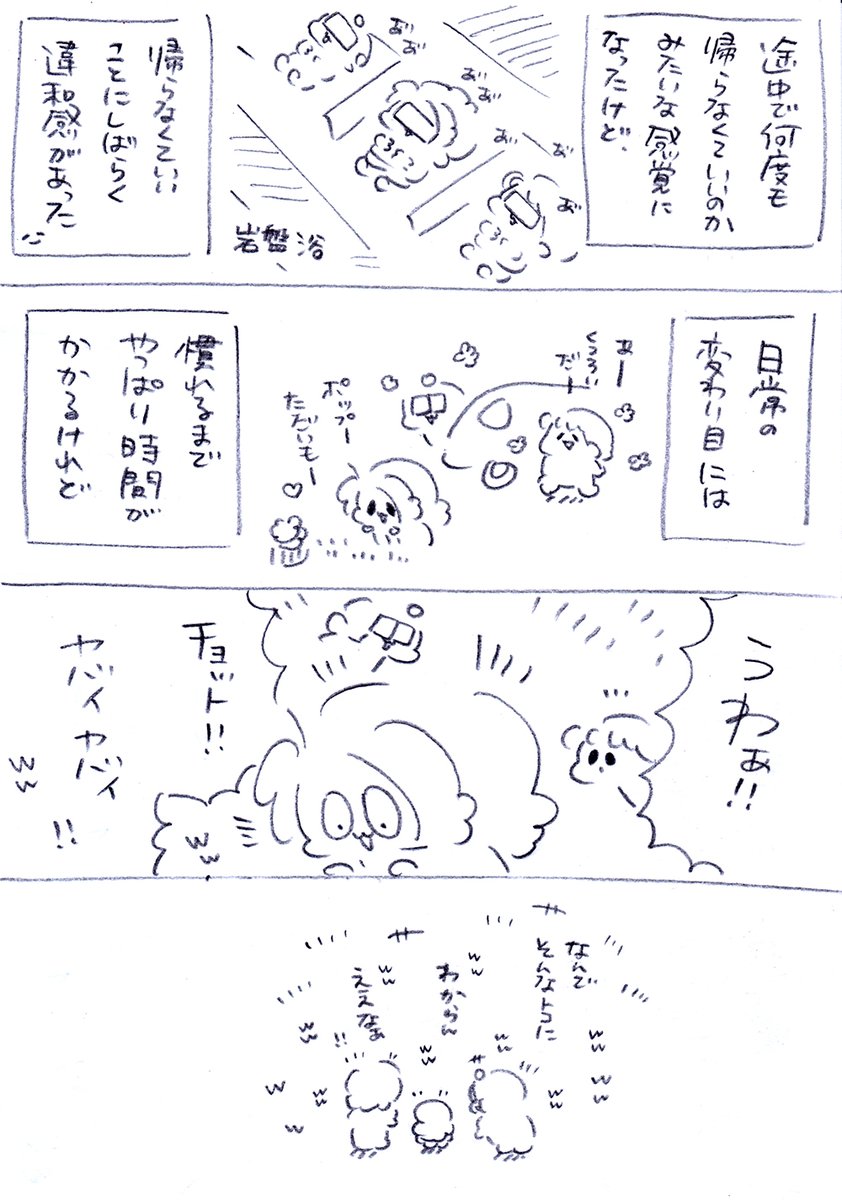 途中で何度も
帰らなくていいのか
みたいな感覚に
なったけど、
あ゛ぁ
あ゛ぁ
あ゛ぁ
あ゛
あ゛
岩盤浴
帰らなくていい
ことにしばらく
違和感があった
日常の
変わり目には
あー
くつろい
だー
ポップー
ただいもー
慣れるまで
やっぱり時間が
かかるけれど
うわぁ!!
チョット!!
ヤバイヤバイ!!
ww
ww
なんで
そんなトコに
わからん
ええなぁ!!